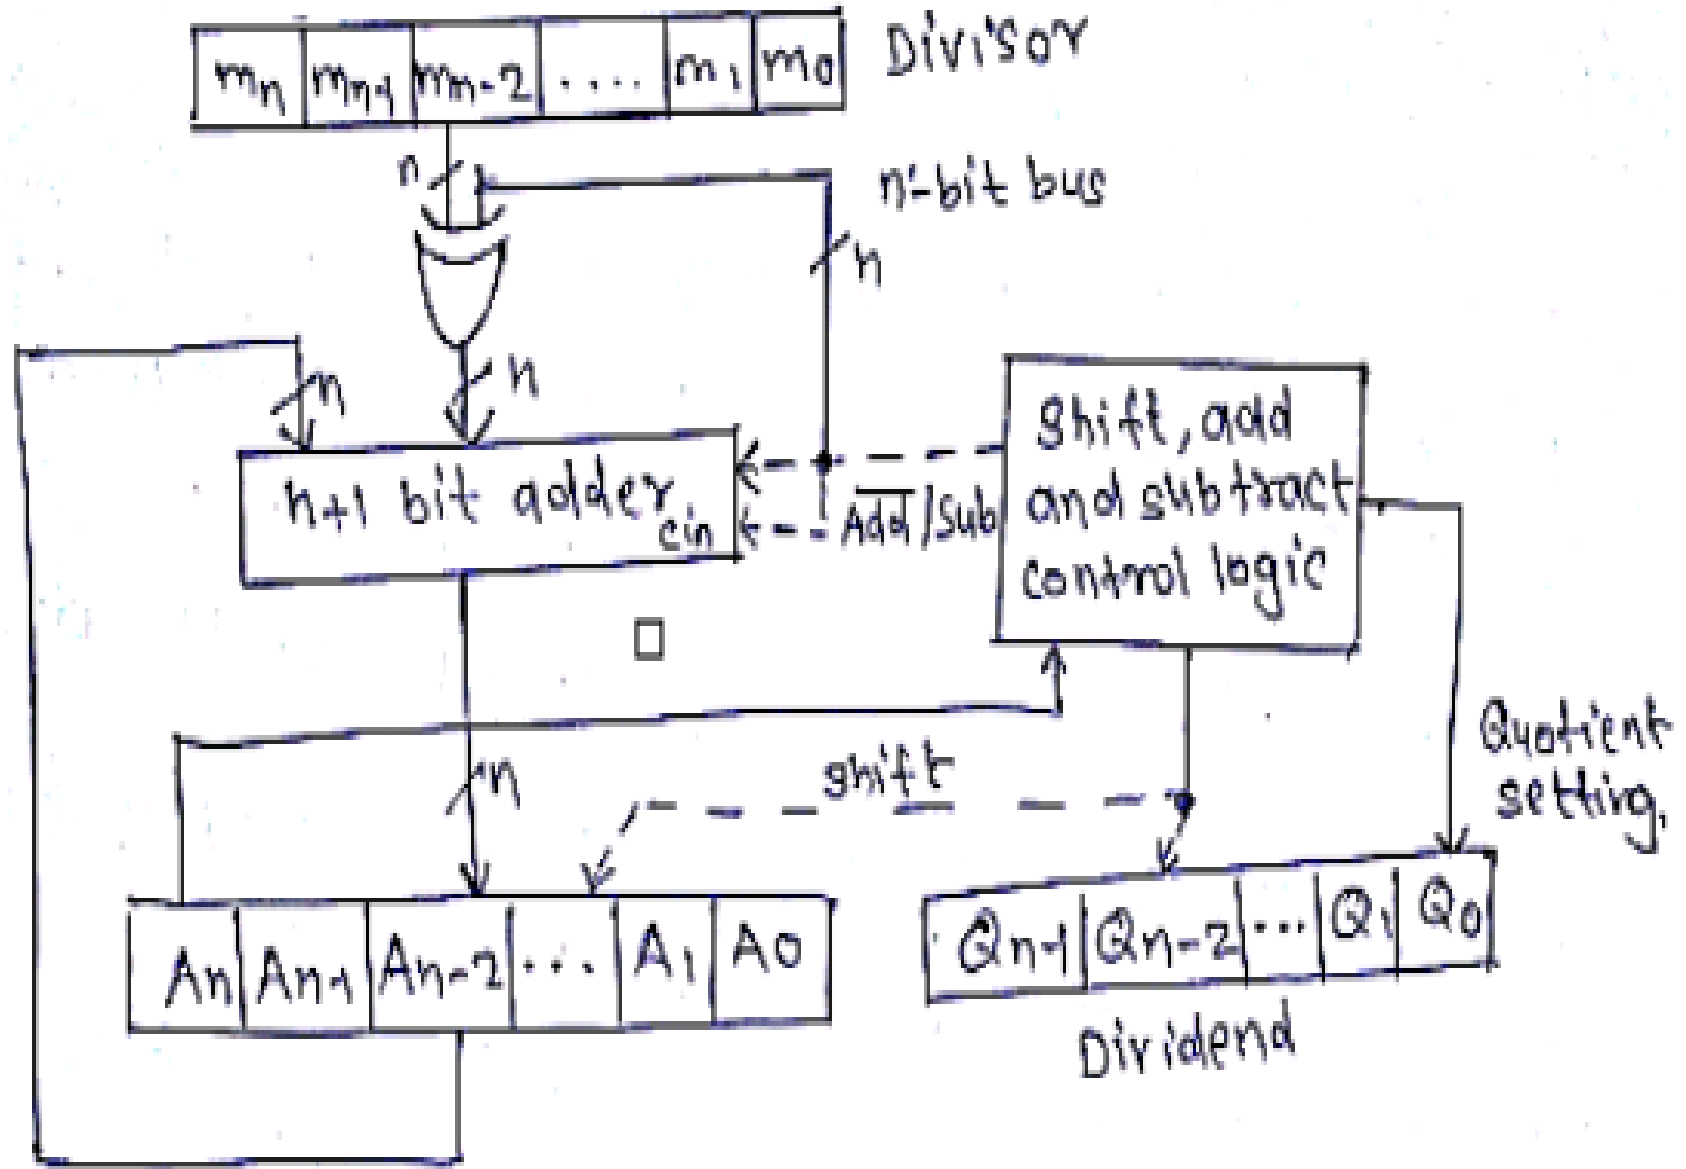 mn mn-1 mn-2 .... m1 m0 Divisor
n
n-bit bus
n
n
n
n+1 bit adder
cin
Add/Sub
Shift, add
and subtract
control logic
n
shift
Quotient
setting,
An An-1 An-2 ... A1 A0
Qn-1 Qn-2 ... Q1 Q0
Dividend